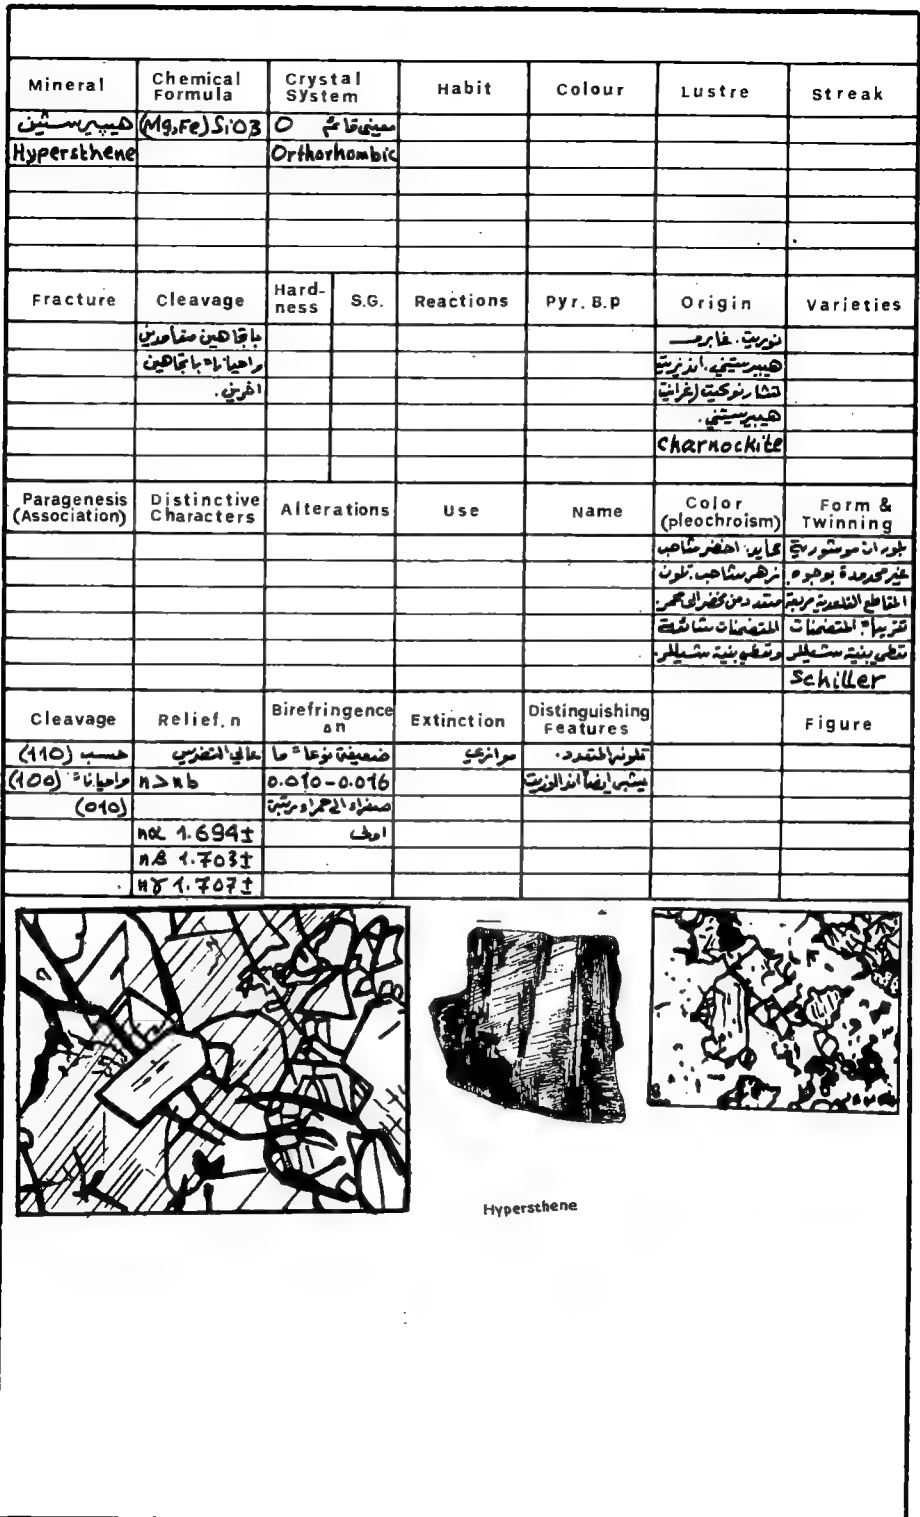 Mineral Chemical Formula Crystal System Habit Colour Lustre Streak
هيبرستين (Mg,Fe)SiO3 O معيني قائم
Hypersthene Orthorhombic
Fracture Cleavage Hardness S.G. Reactions Pyr. B.p Origin Varieties
باتجاهين متعامدين نوريت. غابرو
واحياناً باتجاهين هيبرستيني. اندزيت
اخرين. تشارنوكيت (غرانيت
هيبرستيني.
Charnockite
Paragenesis (Association) Distinctive Characters Alterations Use Name Color (pleochroism) Form & Twinning
عايد: اخضر شاحب بلورات موشورية
زهر شاحب. تلون غير محدودة بوجوه.
متعدد من مخضر الى محمر. المقاطع القاعدية مربعة
المتضمنات شائعة تقريباً. المتضمنات
وتعطي بنية شيللر. تعطي بنية شيللر
Schiller
Cleavage Relief, n Birefringence Δn Extinction Distinguishing Features Figure
حسب (110) عالي التضرس ضعيفة نوعاً ما موازي تلونه المتعدد.
واحياناً (100) n>nb 0.010-0.016 يشبه ايضاً اندالوزيت
(010) صفراء الى حمراء مرتبة
nα 1.694± اولى
nβ 1.703±
nγ 1.707±
Hypersthene